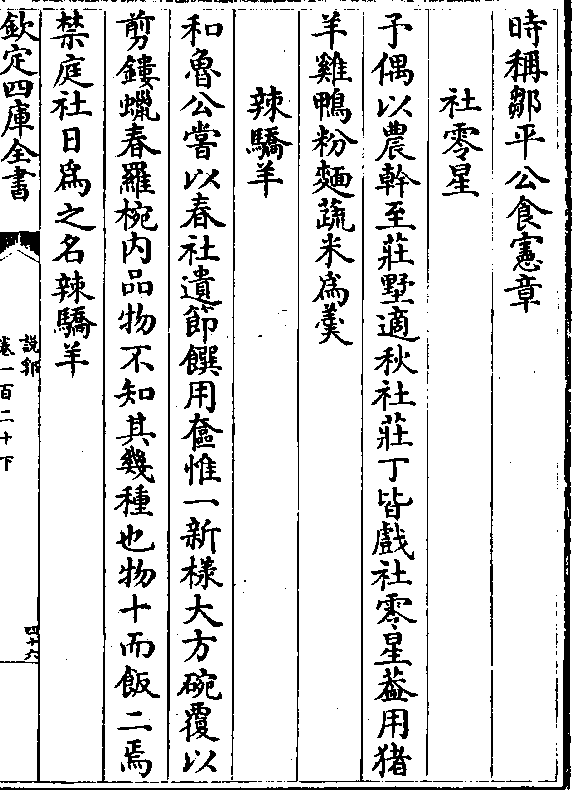 時稱鄒平公食憲章
社零星
予偶以農幹至莊墅適秋社莊丁皆戲社零星葢用猪
羊雞鴨粉麵蔬米為羹
辣驕羊
和魯公嘗以春社遺節饌用奩惟一新樣大方碗覆以
剪鏤蠟春羅椀内品物不知其幾種也物十而飯二焉
禁庭社日為之名辣驕羊
欽定四庫全書
說郛
卷一百二十下
四十六